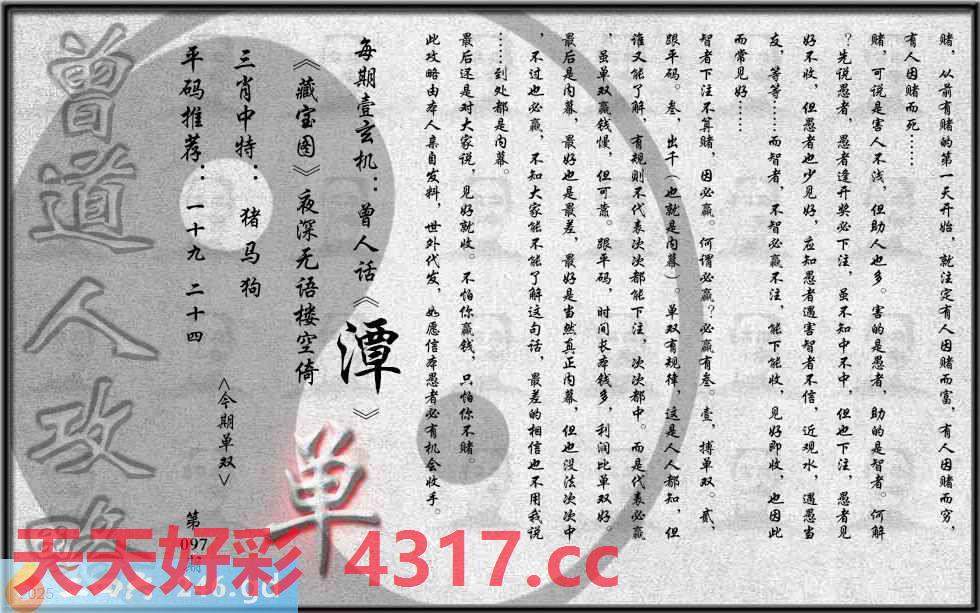 赌，从前有赌的第一天开始，就注定有人因赌而富，有人因赌而穷，
有人因赌而死……
赌，可说是害人不浅，但助人也多。害的是愚者，助的是智者。何解
？先说愚者，愚者逢开奖必下注，虽不知中不中，但也下注，愚者见
好不收，但愚者也少见好，应知愚者遇害智者不信，近观水，遇愚当
友，等等……而智者，不智必赢不注，能下能收，见好即收，也因此
而常见好……
智者下注不算赌，因必赢。何谓必赢？必赢有叁。壹，搏单双。贰，
跟平码。叁，出千（也就是内幕）。单双有规律，这是人人都知，但
谁又能了解，有规则不代表次次都能下注，次次都中。而是代表必赢
，虽单双赢钱慢，但可靠。跟平码，时间长本钱多，利润比单双好。
最后是内幕，最好也是最差，最好是当然真正内幕，但也没法次次中
，不过也必赢，不知大家能不能了解这句话，最差的相信也不用我说
……到处都是内幕。
最后还是对大家说，见好就收。不怕你赢钱，只怕你不赌。
此攻略由本人亲自发料，世外代发，如愿信本愚者必有机会收手。
每期壹玄机：曾人话《潭》
《藏宝图》夜深无语楼空倚
三肖中特：猪马狗
平码推荐：一十九 二十四
<今期单双>
单
第
097
期
曾道人攻略
天天好彩 4317.cc
2025
246.gd